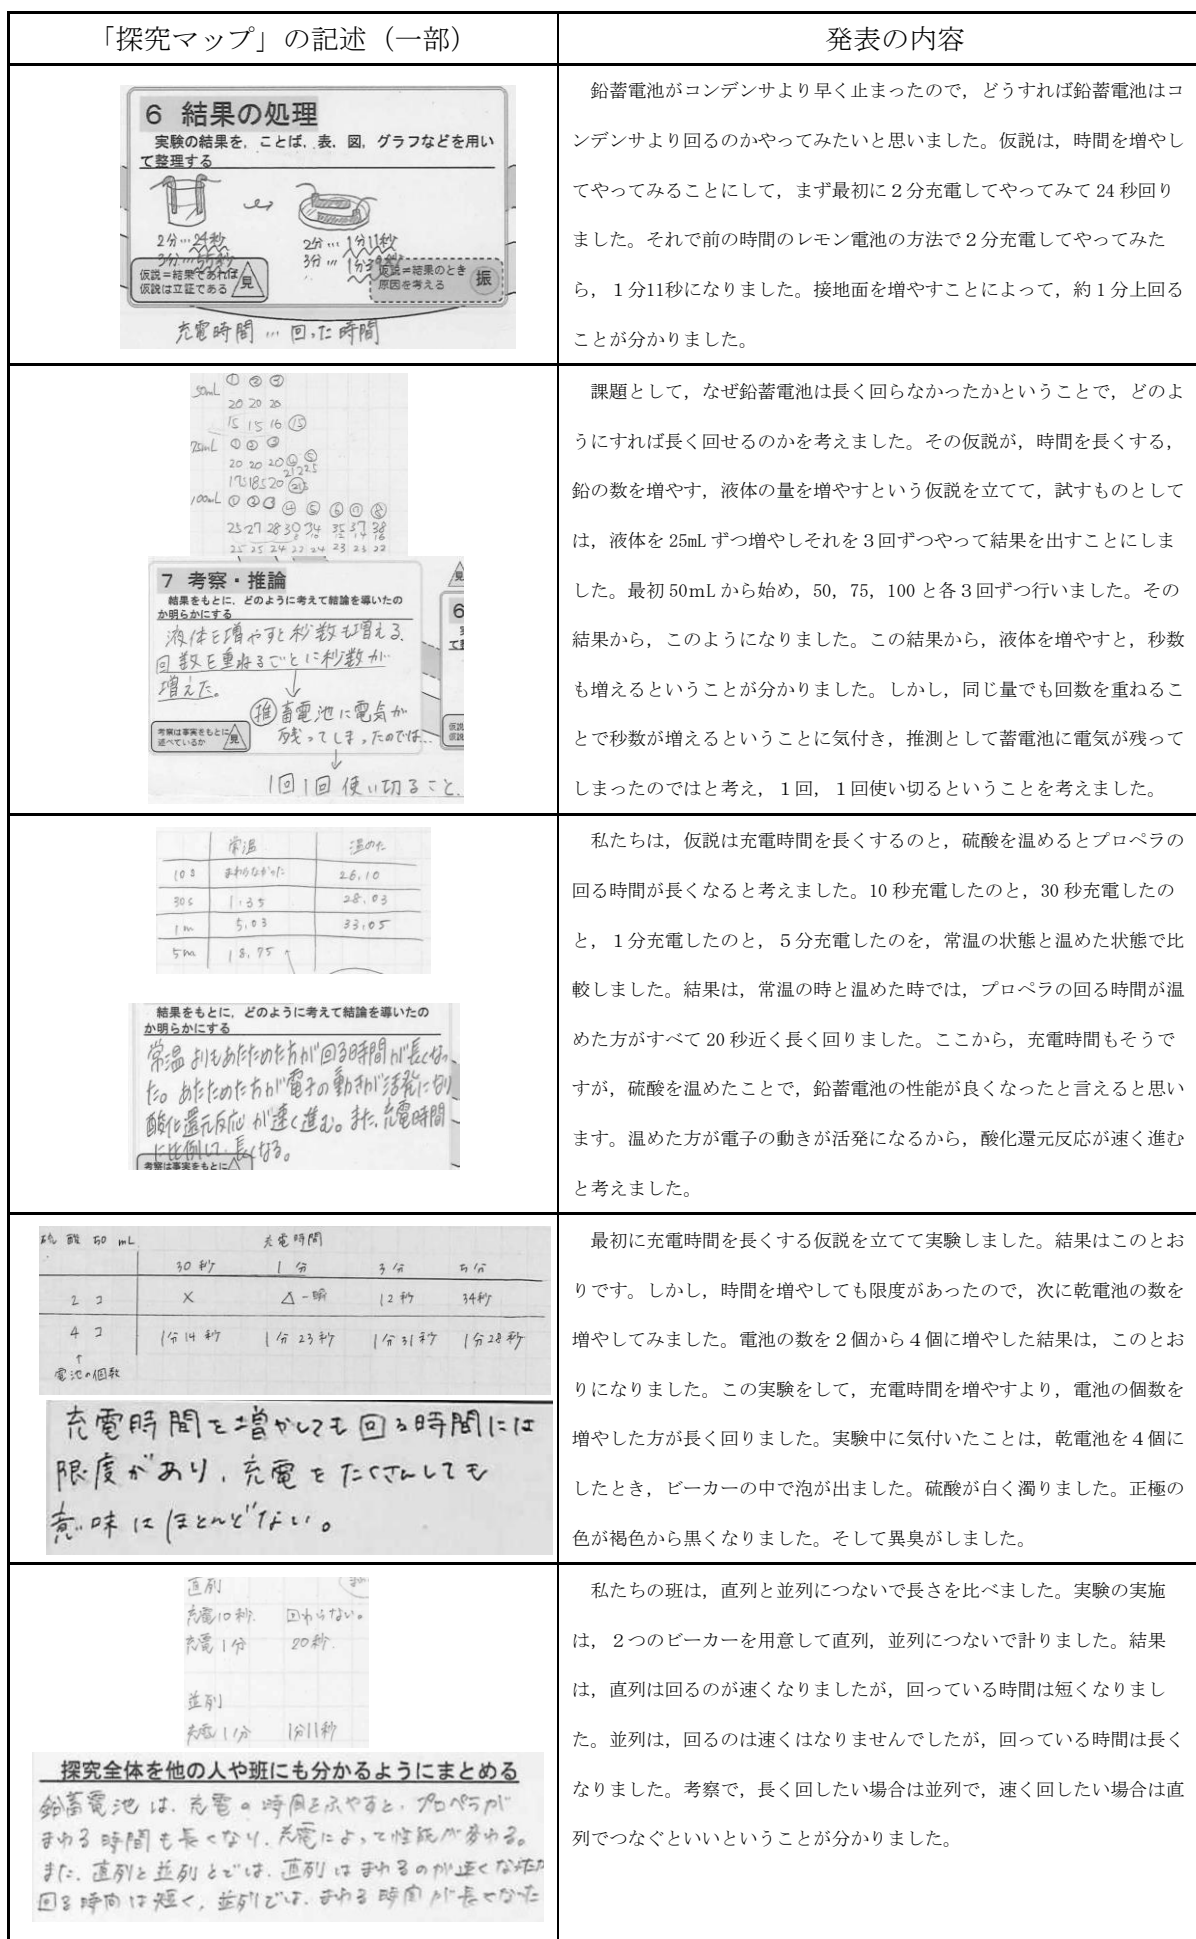 「探究マップ」の記述（一部）
発表の内容
6 結果の処理
実験の結果を，ことば，表，図，グラフなどを用い
て整理する
2分…24秒
3分…55秒
2分…1分11秒
3分…
仮説＝結果であれば
仮説は立証である
見
仮説≠結果のとき
原因を考える
振
充電時間…回った時間
鉛蓄電池がコンデンサより早く止まったので，どうすれば鉛蓄電池はコ
ンデンサより回るのかやってみたいと思いました。仮説は，時間を増やし
てやってみることにして，まず最初に２分充電してやってみて 24 秒回り
ました。それで前の時間のレモン電池の方法で２分充電してやってみた
ら，１分11秒になりました。接地面を増やすことによって，約１分上回る
ことが分かりました。
50mL ① ② ③
20 20 20
15 15 16 ⑮
75mL ① ② ③
20 20 20 ④ ⑤
100mL ① ② ③ ④ ⑤ ⑥ ⑦ ⑧
25 27 28 30 34 35 37 38
25 25 24 22 24 23 23 22
7 考察・推論
結果をもとに，どのように考えて結論を導いたの
か明らかにする
液体を増やすと秒数も増える。
回数を重ねるごとに秒数が
増えた。
推 蓄電池に電気が
残ってしまったのでは…
考察は事実をもとに
述べているか
見
1回1回使い切ること。
課題として，なぜ鉛蓄電池は長く回らなかったかということで，どのよ
うにすれば長く回せるのかを考えました。その仮説が，時間を長くする，
鉛の数を増やす，液体の量を増やすという仮説を立てて，試すものとして
は，液体を 25mL ずつ増やしそれを３回ずつやって結果を出すことにしま
した。最初 50mL から始め，50，75，100 と各３回ずつ行いました。その
結果から，このようになりました。この結果から，液体を増やすと，秒数
も増えるということが分かりました。しかし，同じ量でも回数を重ねるこ
とで秒数が増えるということに気付き，推測として蓄電池に電気が残って
しまったのではと考え，１回，１回使い切るということを考えました。
常温 温めた
10s まわらなかった 26,10
30s 1,35 28,03
1m 5,03 33,05
5m 18,75
結果をもとに，どのように考えて結論を導いたの
か明らかにする
常温よりもあたためた方が回る時間が長くなっ
た。あたためた方が電子の動きが活発になり
酸化還元反応が速く進む。また、充電時間
に比例して、長くなる。
考察は事実をもとに
私たちは，仮説は充電時間を長くするのと，硫酸を温めるとプロペラの
回る時間が長くなると考えました。10 秒充電したのと，30 秒充電したの
と，１分充電したのと，５分充電したのを，常温の状態と温めた状態で比
較しました。結果は，常温の時と温めた時では，プロペラの回る時間が温
めた方がすべて 20 秒近く長く回りました。ここから，充電時間もそうで
すが，硫酸を温めたことで，鉛蓄電池の性能が良くなったと言えると思い
ます。温めた方が電子の動きが活発になるから，酸化還元反応が速く進む
と考えました。
硫酸 50 mL 充電時間
30秒 1分 3分 5分
2コ × △一瞬 12秒 34秒
4コ 1分14秒 1分23秒 1分31秒 1分28秒
↑
電池の個数
充電時間を増やしても回る時間には
限度があり、充電をたくさんしても
意味はほとんどない。
最初に充電時間を長くする仮説を立てて実験しました。結果はこのとお
りです。しかし，時間を増やしても限度があったので，次に乾電池の数を
増やしてみました。電池の数を２個から４個に増やした結果は，このとお
りになりました。この実験をして，充電時間を増やすより，電池の個数を
増やした方が長く回りました。実験中に気付いたことは，乾電池を４個に
したとき，ビーカーの中で泡が出ました。硫酸が白く濁りました。正極の
色が褐色から黒くなりました。そして異臭がしました。
直列
充電10秒. 回わらない。
充電1分 20秒.
並列
充電1分 1分11秒
探究全体を他の人や班にも分かるようにまとめる
鉛蓄電池は、充電の時間をふやすと、プロペラが
まわる時間も長くなり、充電によって性能が変わる。
また、直列と並列とでは、直列はまわるのが速くなったが
回る時間は短く、並列では、まわる時間が長くなった
私たちの班は，直列と並列につないで長さを比べました。実験の実施
は，２つのビーカーを用意して直列，並列につないで計りました。結果
は，直列は回るのが速くなりましたが，回っている時間は短くなりまし
た。並列は，回るのは速くはなりませんでしたが，回っている時間は長く
なりました。考察で，長く回したい場合は並列で，速く回したい場合は直
列でつなぐといいということが分かりました。